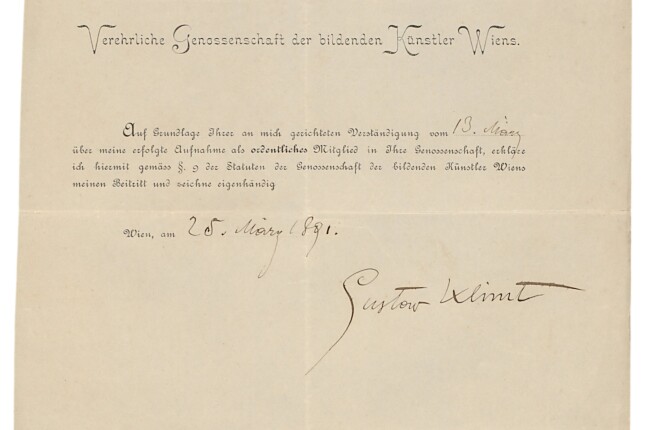 Verehrliche Genossenschaft der bildenden Künstler Wiens.
Auf Grundlage Ihrer an mich gerichteten Verständigung vom 13. März
über meine erfolgte Aufnahme als ordentliches Mitglied in Ihre Genossenschaft, erkläre
ich hiermit gemäss §. 9 der Statuten der Genossenschaft der bildenden Künstler Wiens
meinen Beitritt und zeichne eigenhändig
Wien, am 25. März 1891.
Gustav Klimt